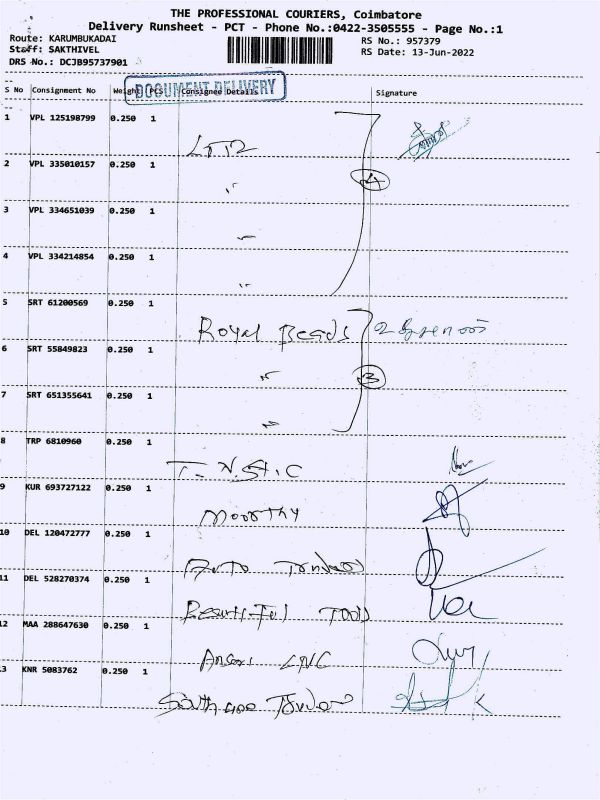 THE PROFESSIONAL COURIERS, Coimbatore
Delivery Runsheet - PCT - Phone No.:0422-3505555 - Page No.:1
Route: KARUMBUKADAI
RS No.: 957379
Staff: SAKTHIVEL
RS Date: 13-Jun-2022
DRS No.: DCJB95737901
DOCUMENT DELIVERY
S No Consignment No Weight PCS Consignee Details Signature
1 VPL 125198799 0.250 1
2 VPL 335010157 0.250 1
4
3 VPL 334651039 0.250 1
4 VPL 334214854 0.250 1
5 SRT 61200569 0.250 1
Royal Beads
6 SRT 55849823 0.250 1
3
7 SRT 651355641 0.250 1
8 TRP 6810960 0.250 1
9 KUR 693727122 0.250 1
Moorthy
10 DEL 120472777 0.250 1
Auto
11 DEL 528270374 0.250 1
Beautiful Tools
12 MAA 288647630 0.250 1
13 KNR 5083762 0.250 1
South